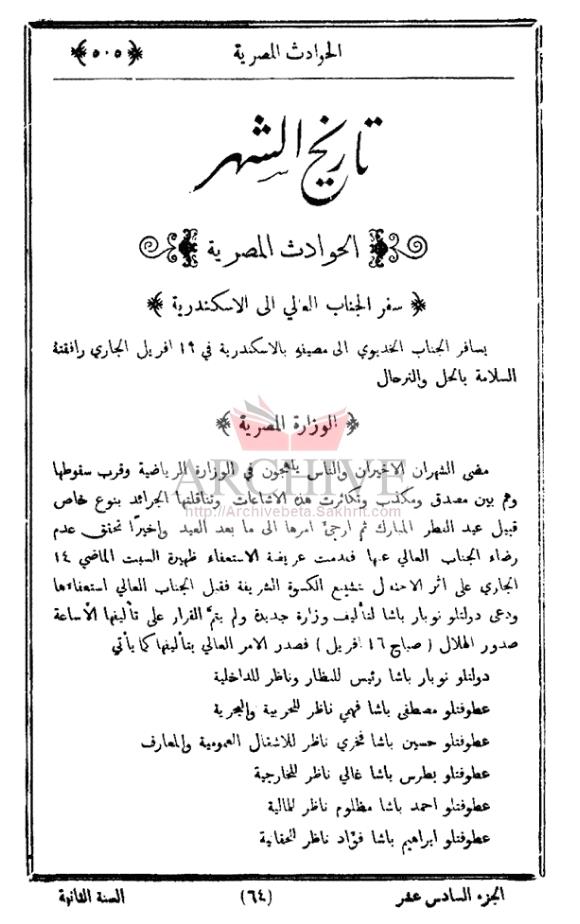 الحوادث المصرية ﴿٥٠٥﴾
تاريخ الشهر
الحوادث المصرية
﴿ سفر الجناب العالي الى الاسكندرية ﴾
يسافر الجناب الخديوي الى مصيفهِ بالاسكندرية في ١٩ افريل الجاري رافقتهُ
السلامة بالحل والترحال
﴿ الوزارة المصرية ﴾
مضى الشهران الاخيران والناس يلهجون في الوزارة الرياضية وقرب سقوطها
وهم بين مصدق ومكذب وتكاثرت هذه الاشاعات وتناقلتها الجرائد بنوع خاص
قبيل عيد الفطر المبارك ثم ارجئ امرها الى ما بعد العيد واخيرًا تحقق عدم
رضاء الجناب العالي عنها فقدمت عريضة الاستعفاء ظهيرة السبت الماضي ١٤
الجاري على اثر الاحتفال بتشييع الكسوة الشريفة فقبل الجناب العالي استعفاءها
ودعى دولتلو نوبار باشا لتأليف وزارة جديدة ولم يتمَّ القرار على تأليفها الاَّ ساعة
صدور الهلال ( صباح ١٦ افريل ) فصدر الامر العالي بتأليفها كما يأتي
دولتلو نوبار باشا رئيس للنظار وناظر للداخلية
عطوفتلو مصطفى باشا فهمي ناظر للحربية والبحرية
عطوفتلو حسين باشا فخري ناظر للاشغال العمومية والمعارف
عطوفتلو بطرس باشا غالي ناظر للخارجية
عطوفتلو احمد باشا مظلوم ناظر للمالية
عطوفتلو ابراهيم باشا فؤاد ناظر للحقانية
الجزء السادس عشر (٦٤) السنة الثانية
ARCHIVE
http://Archivebeta.Sakhrit.com